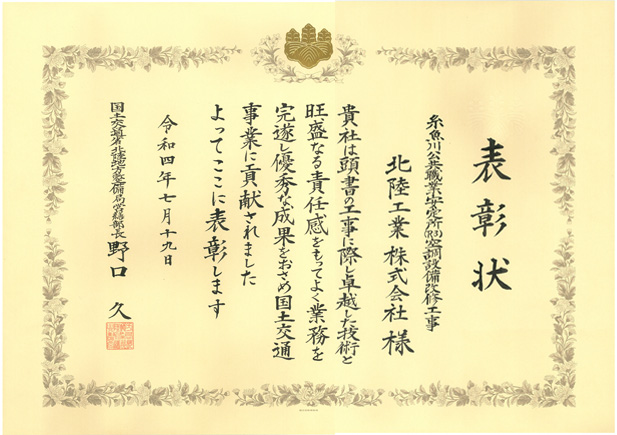 表彰状
糸魚川公共職業安定所(R3)空調設備改修工事
北陸工業株式会社 様
貴社は頭書の工事に際し卓越した技術と
旺盛なる責任感をもってよく業務を
完遂し優秀な成果をおさめ国土交通
事業に貢献されました
よってここに表彰します
令和四年七月十九日
国土交通省北陸地方整備局営繕部長 野口 久